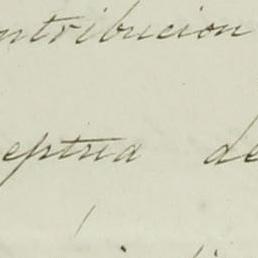 ntribucion
eptua de